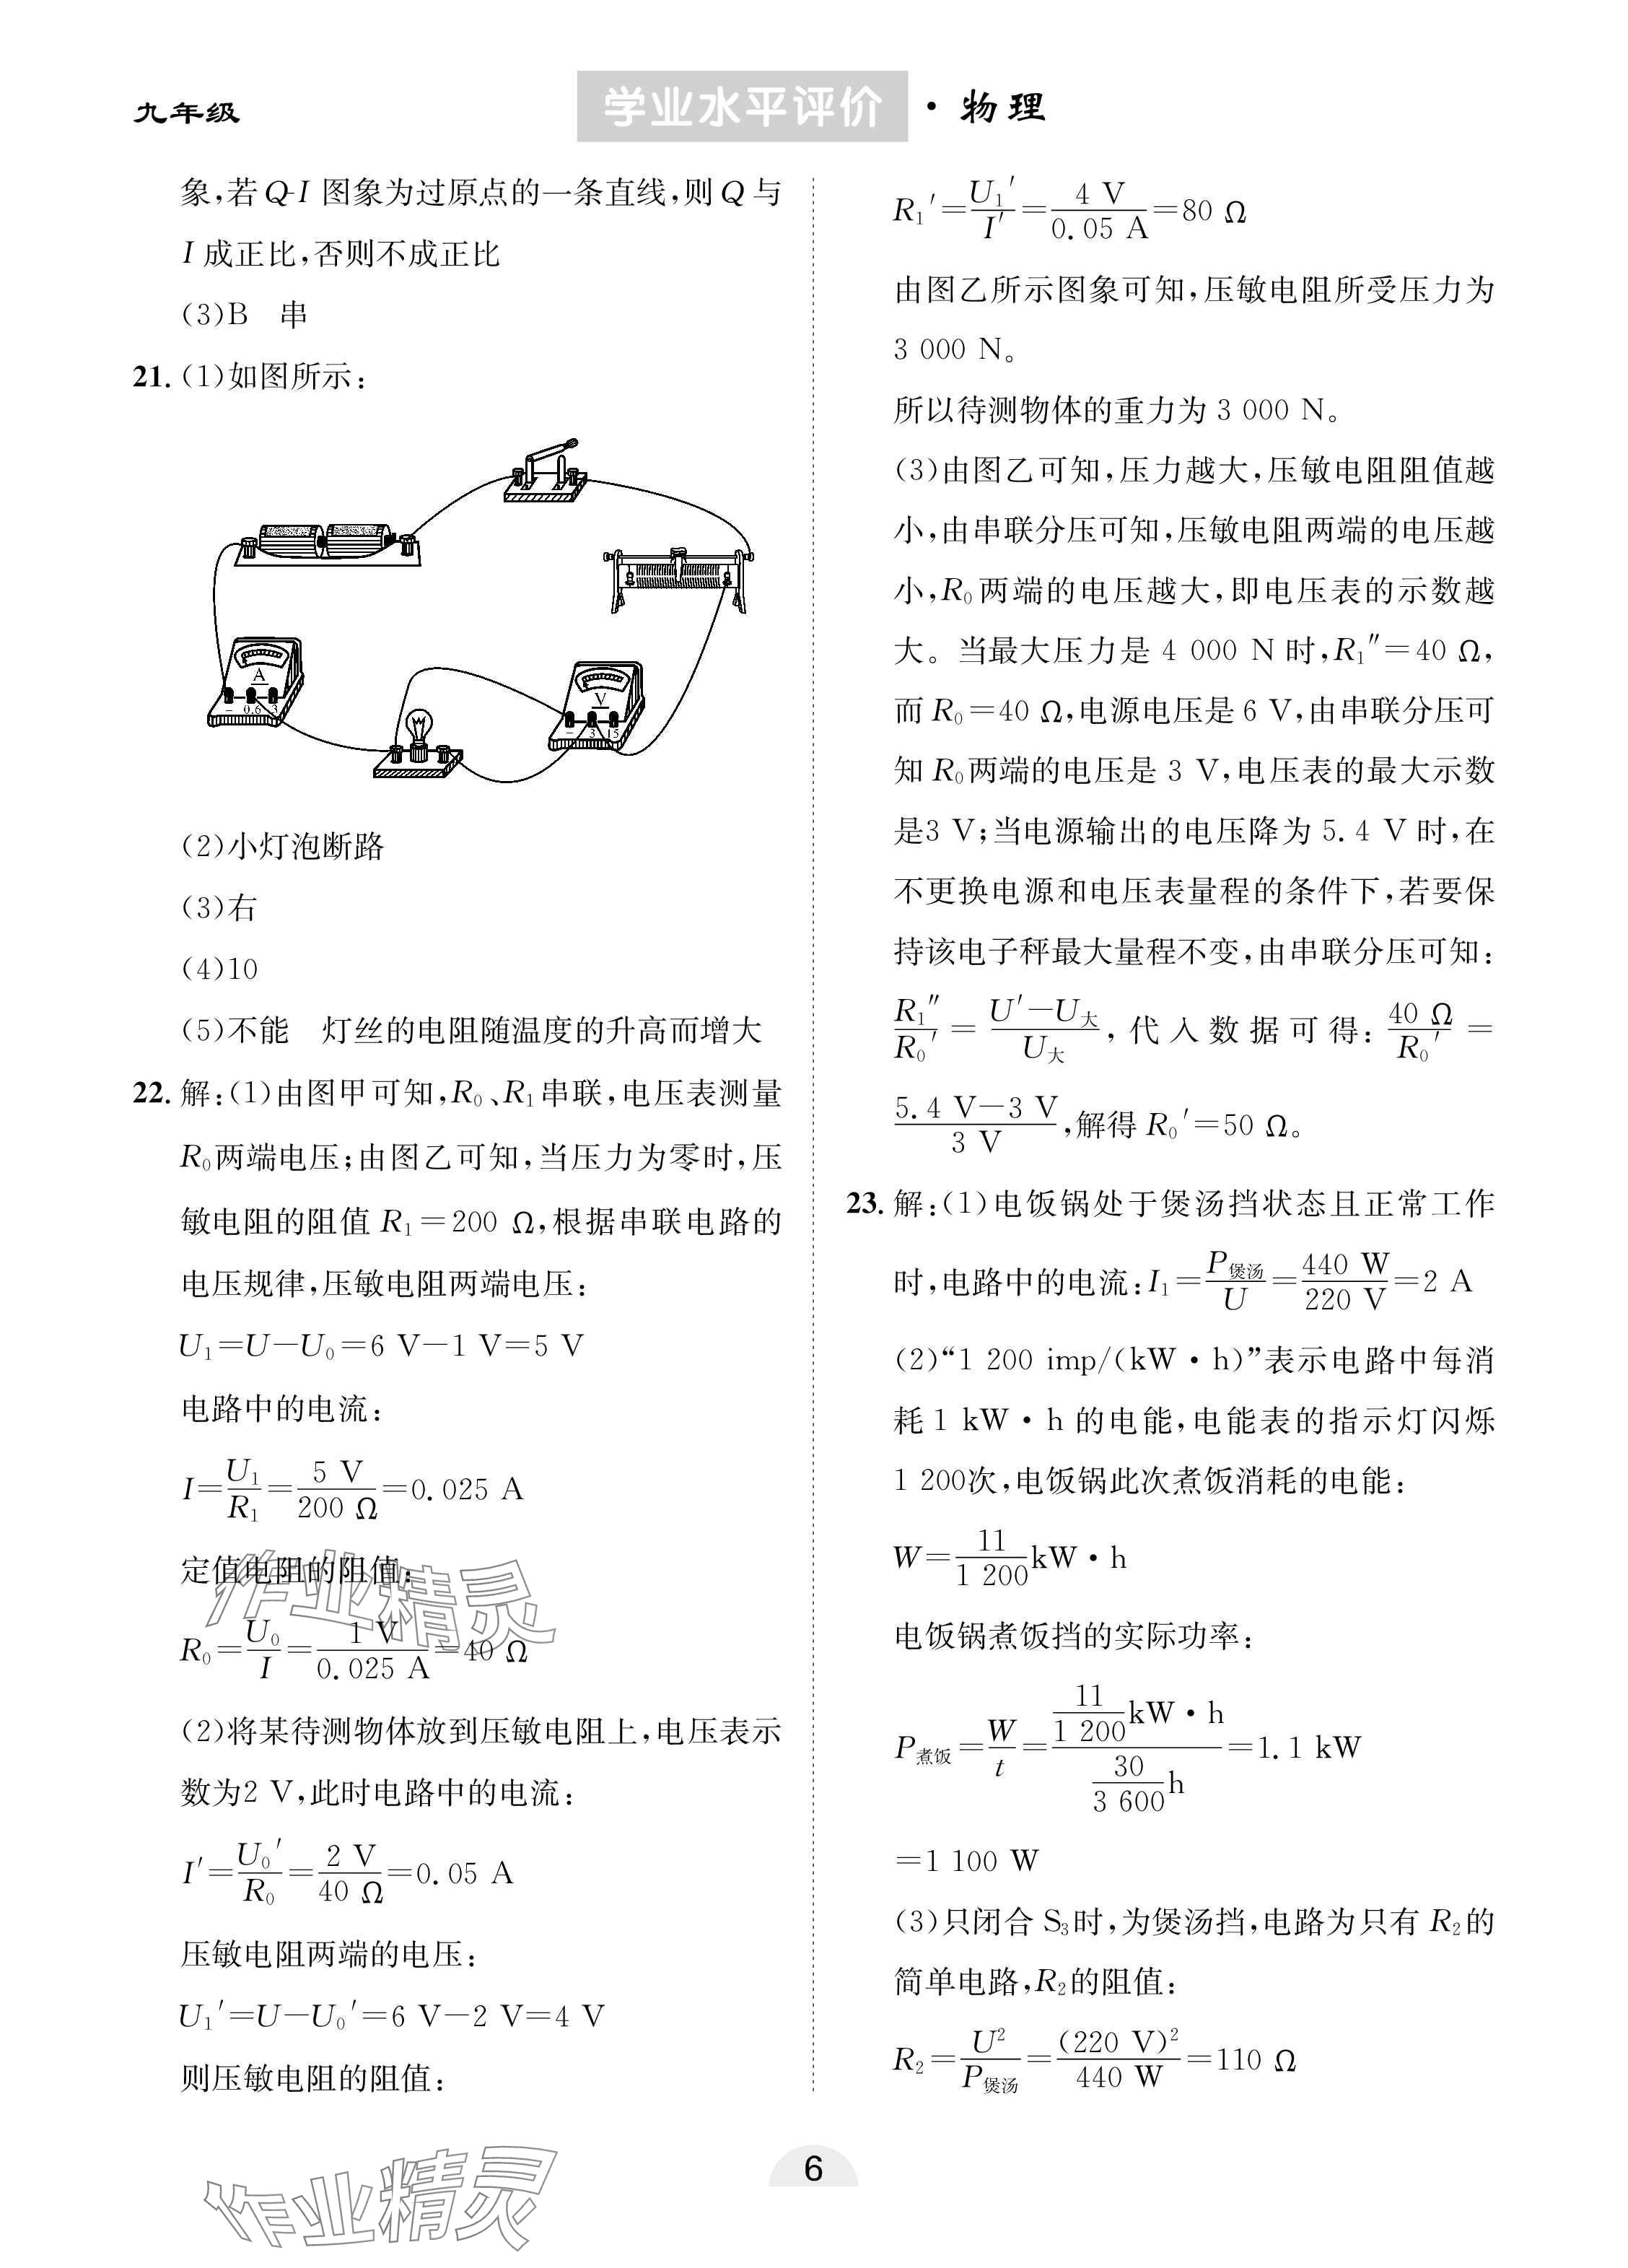 九年级
学业水平评价·物理
象,若Q-I 图象为过原点的一条直线,则Q与
I成正比,否则不成正比
(3)B 串
21.(1)如图所示:
A
- 0.6 3
V
- 3 15
(2)小灯泡断路
(3)右
(4)10
(5)不能 灯丝的电阻随温度的升高而增大
22.解:(1)由图甲可知,R₀、R₁串联,电压表测量
R₀两端电压;由图乙可知,当压力为零时,压
敏电阻的阻值R₁=200 Ω,根据串联电路的
电压规律,压敏电阻两端电压:
U₁=U-U₀=6 V-1 V=5 V
电路中的电流:
I=U₁/R₁=5 V/200 Ω=0.025 A
定值电阻的阻值:
R₀=U₀/I=1 V/0.025 A=40 Ω
(2)将某待测物体放到压敏电阻上,电压表示
数为2 V,此时电路中的电流:
I′=U₀′/R₀=2 V/40 Ω=0.05 A
压敏电阻两端的电压:
U₁′=U-U₀′=6 V-2 V=4 V
则压敏电阻的阻值:
R₁′=U₁′/I′=4 V/0.05 A=80 Ω
由图乙所示图象可知,压敏电阻所受压力为
3 000 N。
所以待测物体的重力为3 000 N。
(3)由图乙可知,压力越大,压敏电阻阻值越
小,由串联分压可知,压敏电阻两端的电压越
小,R₀两端的电压越大,即电压表的示数越
大。当最大压力是4 000 N时,R₁″=40 Ω,
而R₀=40 Ω,电源电压是6 V,由串联分压可
知R₀两端的电压是3 V,电压表的最大示数
是3 V;当电源输出的电压降为5.4 V时,在
不更换电源和电压表量程的条件下,若要保
持该电子秤最大量程不变,由串联分压可知:
R₁″/R₀′=(U′-U大)/U大,代入数据可得:40 Ω/R₀′=
(5.4 V-3 V)/3 V,解得R₀′=50 Ω。
23.解:(1)电饭锅处于煲汤挡状态且正常工作
时,电路中的电流:I₁=P煲汤/U=440 W/220 V=2 A
(2)“1 200 imp/(kW·h)”表示电路中每消
耗1 kW·h的电能,电能表的指示灯闪烁
1 200次,电饭锅此次煮饭消耗的电能:
W=11/1 200 kW·h
电饭锅煮饭挡的实际功率:
P煮饭=W/t=(11/1 200 kW·h)/(30/3 600 h)=1.1 kW
=1 100 W
(3)只闭合S₃时,为煲汤挡,电路为只有R₂的
简单电路,R₂的阻值:
R₂=U²/P煲汤=(220 V)²/440 W=110 Ω
6
作业精灵
作业精灵